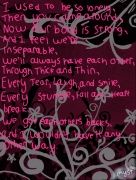 I used to be so lonely,
Then you came around,
Now our bond is strong,
And I feel we're
Inseparable.
We'll always have each other,
Through Thick and Thin,
Every Tear, laugh, and smile,
Every stumble, fall and heart
break
We got each others backs,
and I wouldn't have it any
other way